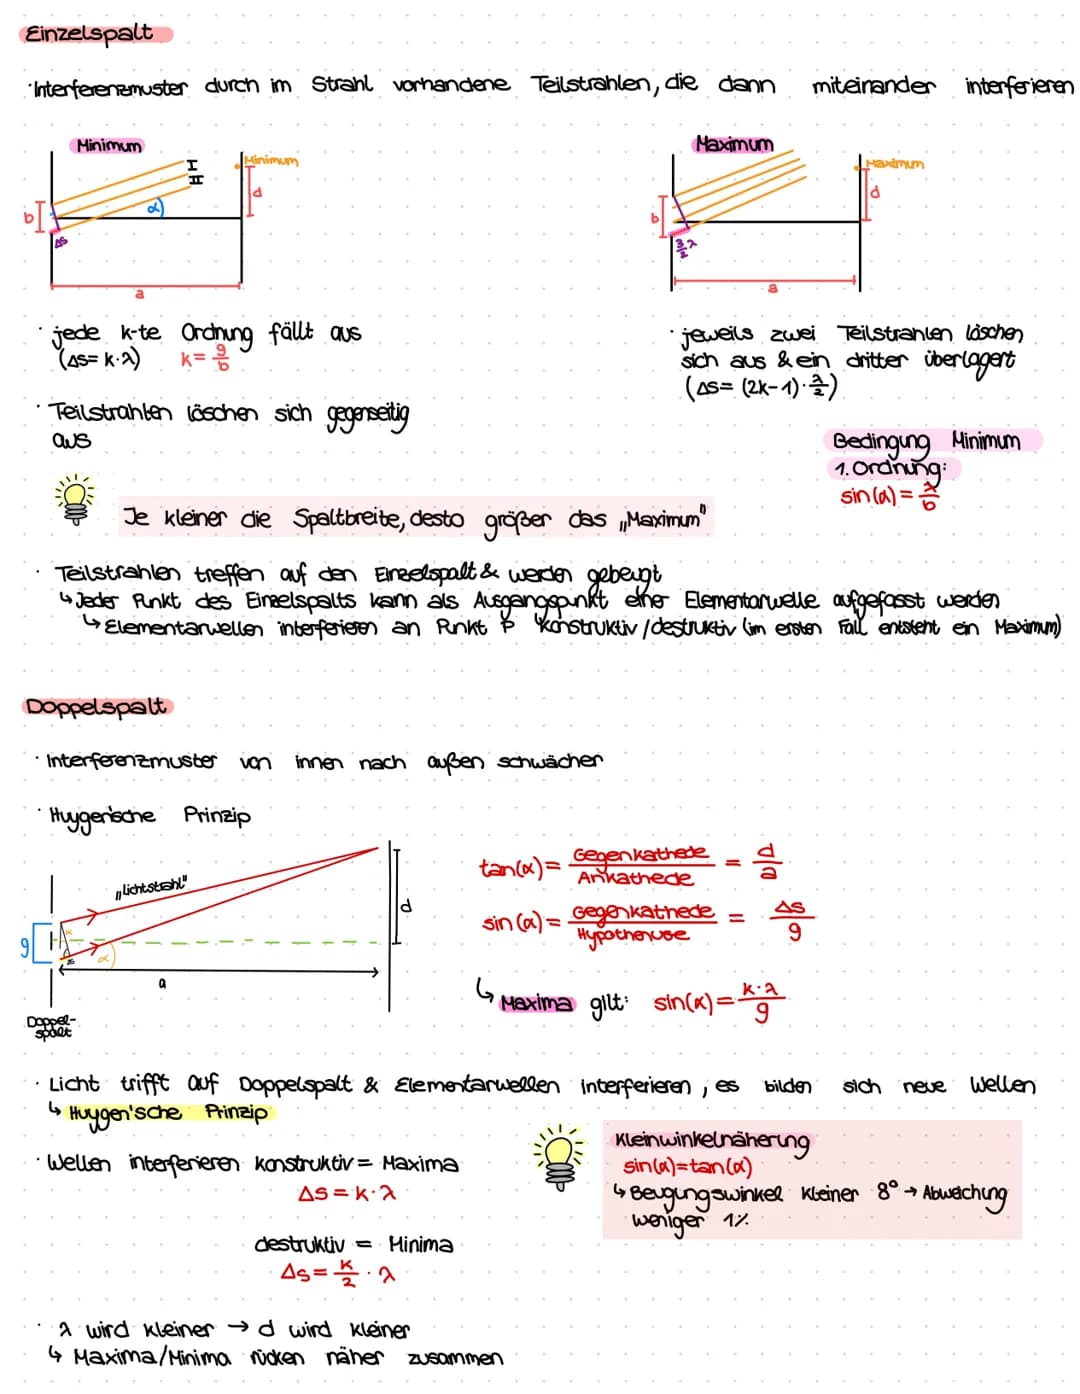 Einzelspalt
· Interferenzmuster durch im Strahl vorhandene Teilstrahlen, die dann miteinander interferieren
Minimum
I
II
Minimum
d
α
b
Δs
a
Maximum
Maximum
d
b
3/2 λ
a
· jede k-te Ordnung fällt aus
(Δs = k·λ) k = g/b
· Teilstrahlen löschen sich gegenseitig
aus
· jeweils zwei Teilstrahlen löschen
sich aus & ein dritter überlagert
(Δs = (2k-1)·λ/2)
Bedingung Minimum
1. Ordnung:
sin(α) = λ/b
Je kleiner die Spaltbreite, desto größer das „Maximum"
· Teilstrahlen treffen auf den Einzelspalt & werden gebeugt
↳ Jeder Punkt des Einzelspalts kann als Ausgangspunkt einer Elementarwelle aufgefasst werden
↳ Elementarwellen interferieren an Punkt P konstruktiv/destruktiv (im ersten Fall entsteht ein Maximum)
Doppelspalt
· Interferenzmuster von innen nach außen schwächer
· Huygen'sche Prinzip
„Lichtstrahl"
d
g
α
Δs
α
a
Doppel-
spalt
tan(α) = Gegenkathede/Ankathede = d/a
sin(α) = Gegenkathede/Hypothenuse = Δs/g
↳ Maxima gilt: sin(α) = k·λ/g
· Licht trifft auf Doppelspalt & Elementarwellen interferieren, es bilden sich neue Wellen
↳ Huygen'sche Prinzip
· Wellen interferieren konstruktiv = Maxima
Δs = k·λ
destruktiv = Minima
Δs = k/2 · λ
Kleinwinkelnäherung
sin(α)=tan(α)
↳ Beugungswinkel kleiner 8° → Abweichung
weniger 1%
· λ wird kleiner → d wird kleiner
↳ Maxima/Minima rücken näher zusammen